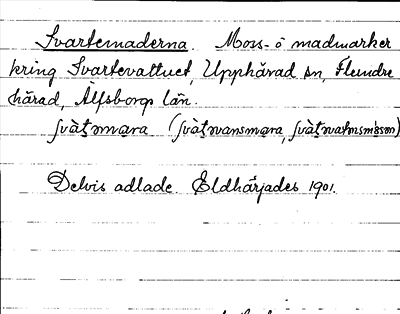 Svartemaderna. Moss- o madmarker
kring Svartevattnet, Upphärad sn, Flundre
härad, Älfsborgs län.
svàtmara (svàtvansmara, svàtvatnsmosen)
Delvis odlade. Eldhärjades 1901.